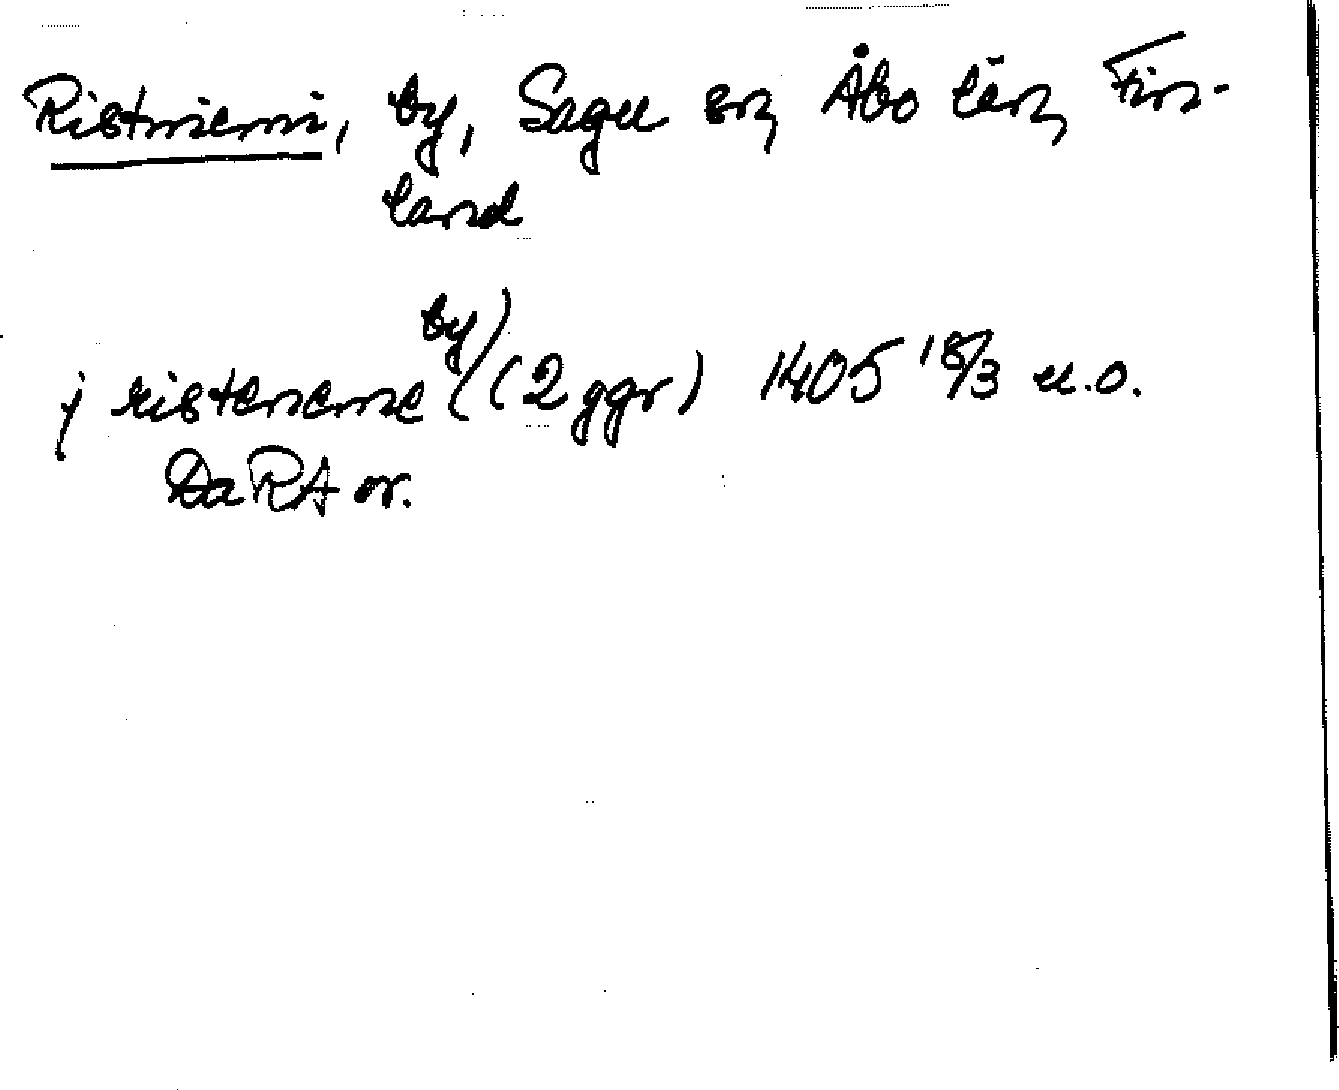 Ristniemi, by, Sagu sn, Åbo län, Fin-
land
j risteneme (by) (2 ggr) 1405 18/3 u.o.
DaRA or.